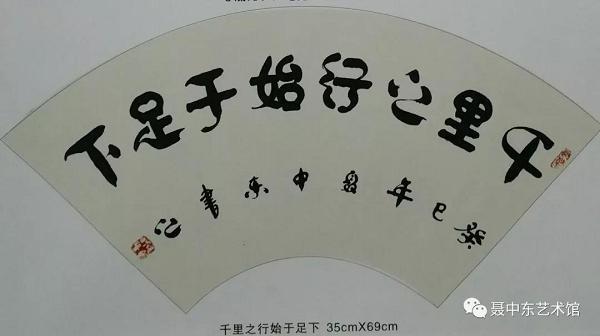 千里之行始于足下
癸巳年聂中东书记
千里之行始于足下 35cmX69cm
聂中东艺术馆